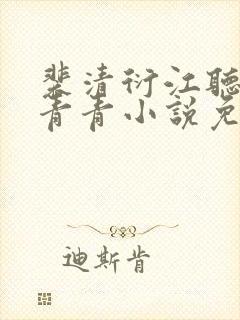 裴清衍江聽
青青小說免
迪斯肯